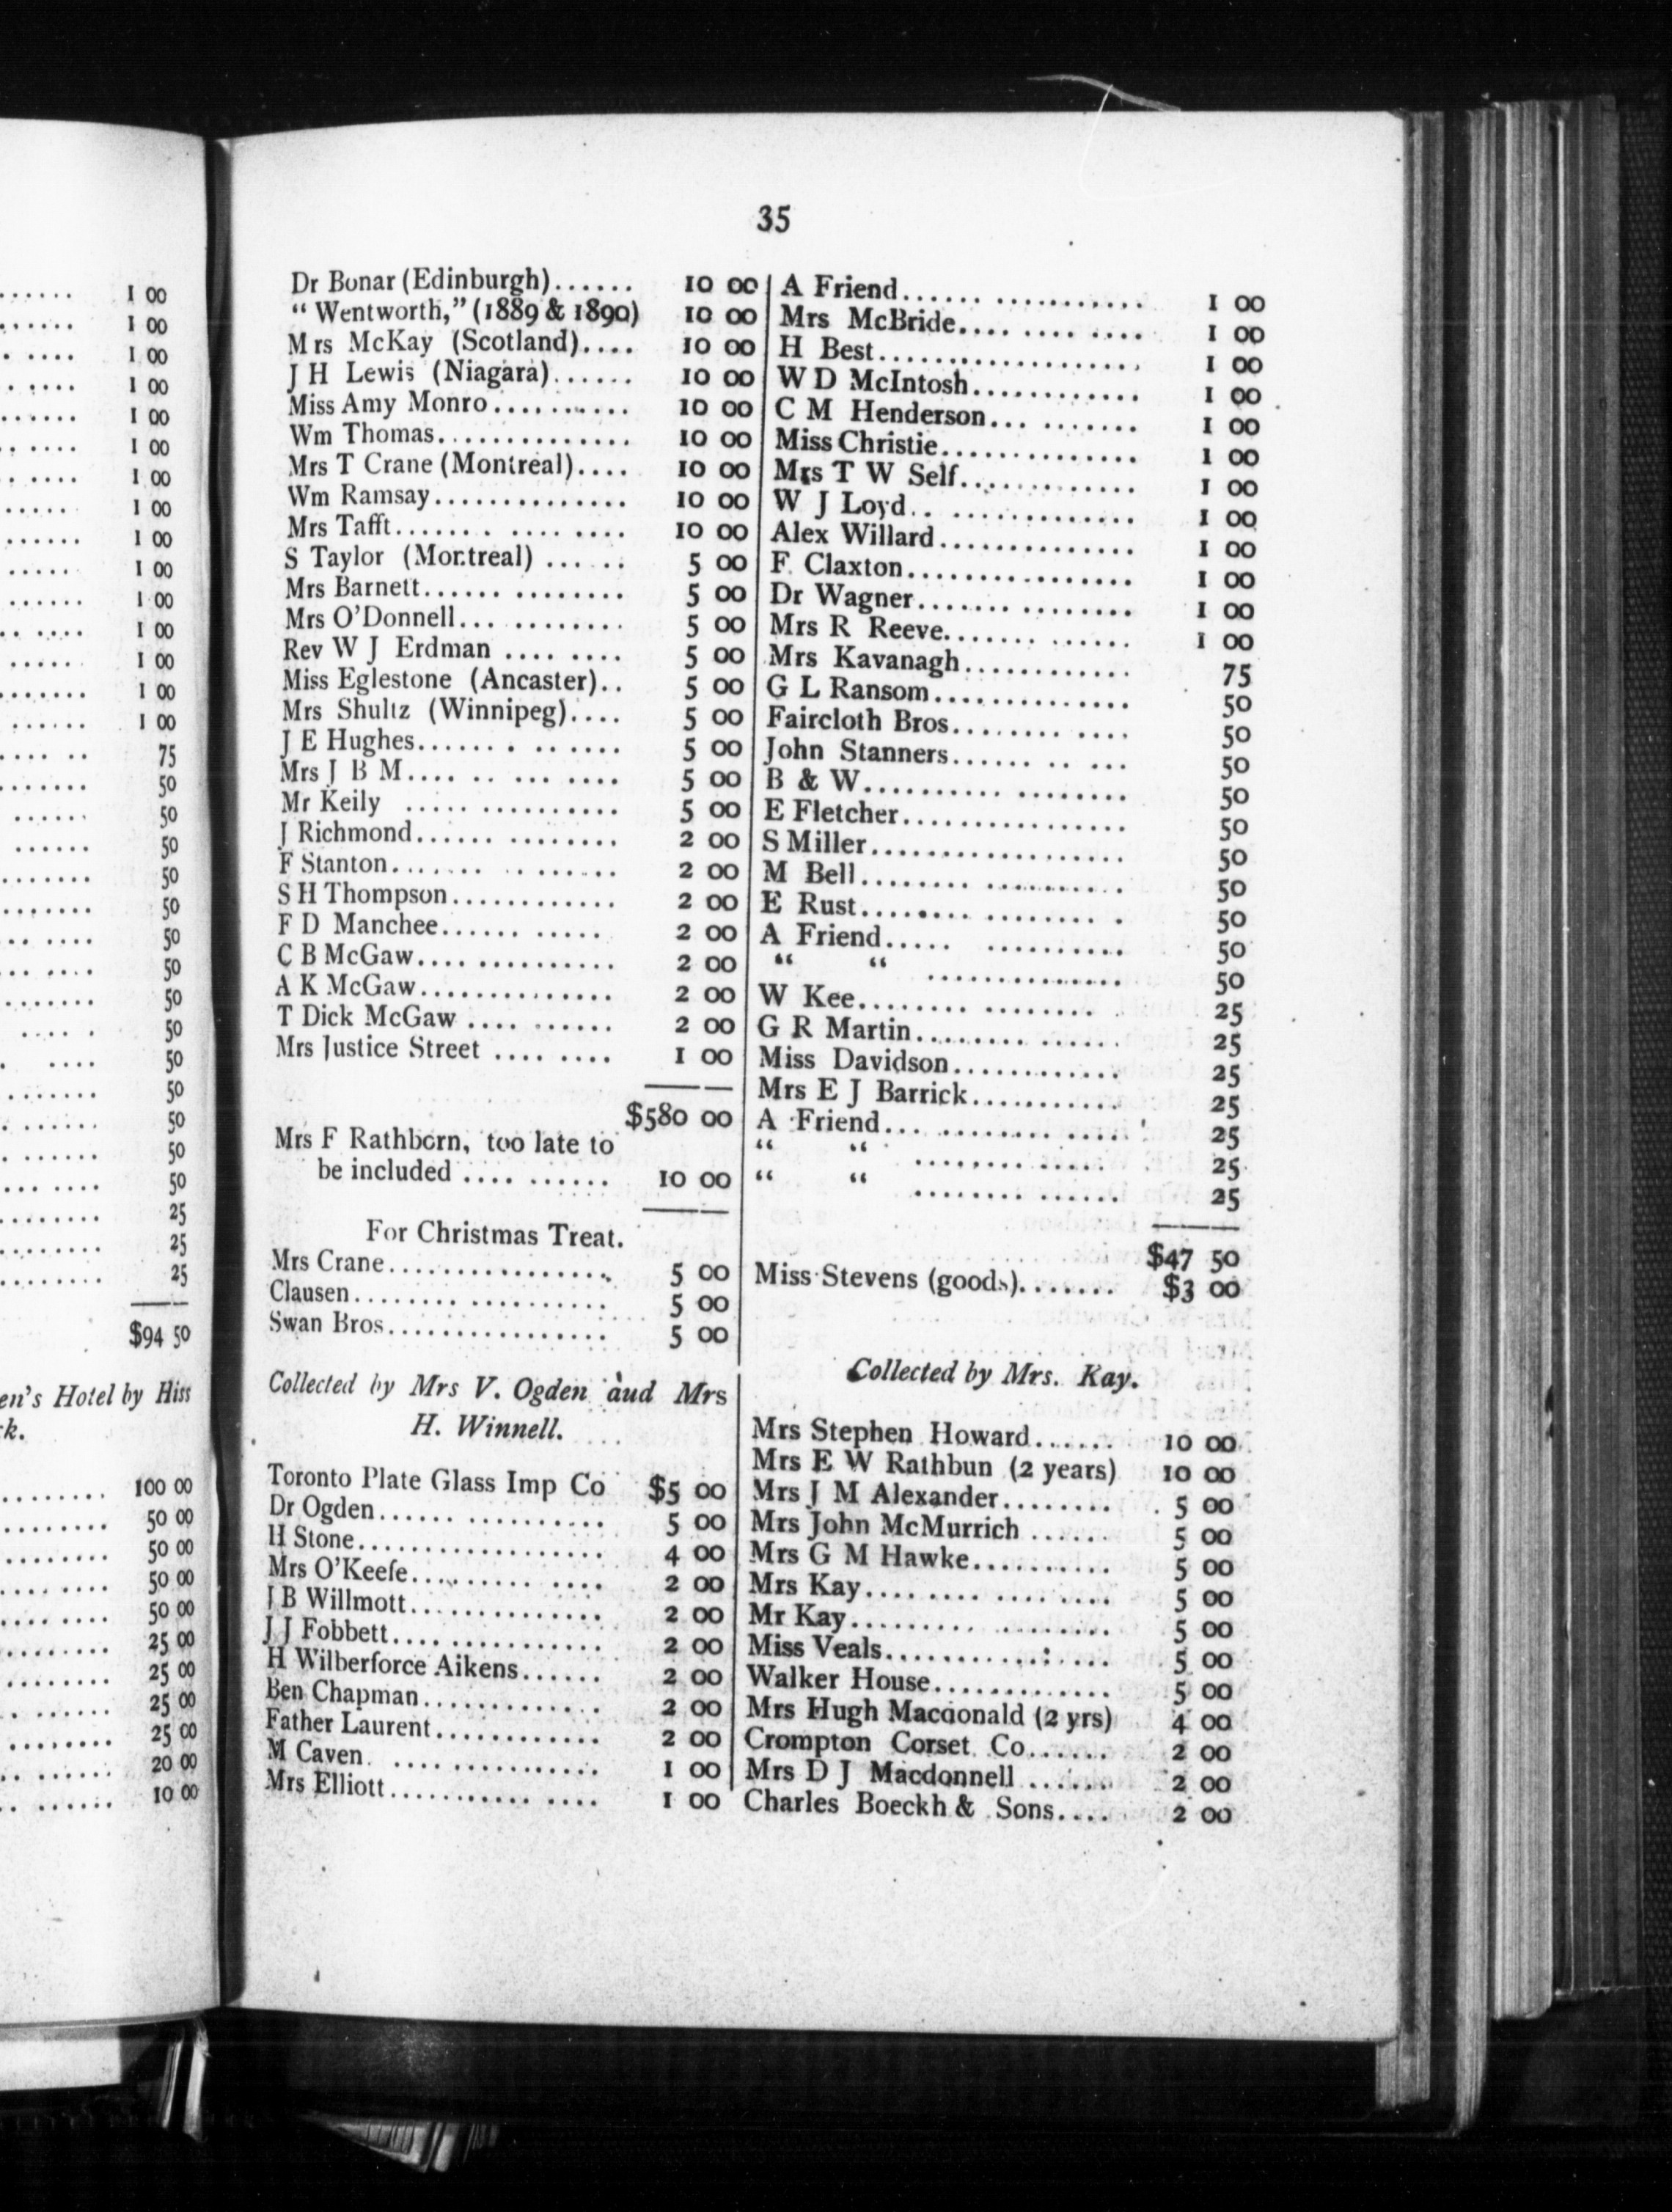 1 00
1 00
1 00
1 00
1 00
1 00
1 00
1 00
1 00
1 00
1 00
1 00
1 00
1 00
1 00
75
50
50
50
50
50
50
50
50
50
50
50
50
50
50
25
25
25
$94 50
en's Hotel by Hiss
k.
100 00
50 00
50 00
50 00
50 00
25 00
25 00
25 00
25 00
20 00
10 00
35
Dr Bonar (Edinburgh)...... 10 00
“ Wentworth,” (1889 & 1890) 10 00
Mrs McKay (Scotland).... 10 00
J H Lewis (Niagara)...... 10 00
Miss Amy Monro.......... 10 00
Wm Thomas.............. 10 00
Mrs T Crane (Montreal).... 10 00
Wm Ramsay.............. 10 00
Mrs Tafft........ .... .... 10 00
S Taylor (Montreal) ...... 5 00
Mrs Barnett...... ........ 5 00
Mrs O'Donnell... ......... 5 00
Rev W J Erdman .... .... 5 00
Miss Eglestone (Ancaster).. 5 00
Mrs Shultz (Winnipeg).... 5 00
J E Hughes...... . .. .... 5 00
Mrs J B M.... .. ... .... 5 00
Mr Keily ..... .......... 5 00
J Richmond...... ........ 2 00
F Stanton....... ........ 2 00
S H Thompson............ 2 00
F D Manchee...... ..... 2 00
C B McGaw.... .......... 2 00
A K McGaw.............. 2 00
T Dick McGaw .... ...... 2 00
Mrs Justice Street .... .... 1 00
$580 00
Mrs F Rathborn, too late to
be included .... ...... 10 00
For Christmas Treat.
Mrs Crane................ 5 00
Clausen........ .......... 5 00
Swan Bros................ 5 00
Collected by Mrs V. Ogden aud Mrs
H. Winnell.
Toronto Plate Glass Imp Co $5 00
Dr Ogden...... .......... 5 00
H Stone.................. 4 00
Mrs O'Keefe......... .... 2 00
J B Willmott.............. 2 00
J J Fobbett.... ........... 2 00
H Wilberforce Aikens...... 2 00
Ben Chapman............. 2 00
Father Laurent............ 2 00
M Caven. .... ........... 1 00
Mrs Elliott........... .... 1 00
A Friend...... ........... 1 00
Mrs McBride.... .... .... 1 00
H Best................... 1 00
W D McIntosh............ 1 00
C M Henderson... ....... 1 00
Miss Christie.............. 1 00
Mrs T W Self............. 1 00
W J Loyd.. ............. 1 00
Alex Willard.............. 1 00
F. Claxton................ 1 00
Dr Wagner....... ........ 1 00
Mrs R Reeve....... ...... 1 00
Mrs Kavanagh............ 75
G L Ransom.............. 50
Faircloth Bros........ .... 50
John Stanners...... .. ... 50
B & W.......... ........ 50
E Fletcher................ 50
S Miller.................. 50
M Bell........ .......... 50
E Rust........ ........ . 50
A Friend..... .......... 50
“ “ .............. 50
W Kee........ ........ 25
G R Martin......... ...... 25
Miss Davidson............ 25
Mrs E J Barrick........... 25
A Friend... ......... .... 25
“ “ ........ ..... 25
“ “ ........ ...... 25
$47 50
Miss Stevens (goods)....... $3 00
Collected by Mrs. Kay.
Mrs Stephen Howard...... 10 00
Mrs E W Rathbun (2 years) 10 00
Mrs J M Alexander........ 5 00
Mrs John McMurrich ...... 5 00
Mrs G M Hawke.......... 5 00
Mrs Kay.... .... ........ 5 00
Mr Kay.......... ........ 5 00
Miss Veals................ 5 00
Walker House............. 5 00
Mrs Hugh Macdonald (2 yrs) 4 00
Crompton Corset Co...... 2 00
Mrs D J Macdonnell ....... 2 00
Charles Boeckh & Sons.... 2 00